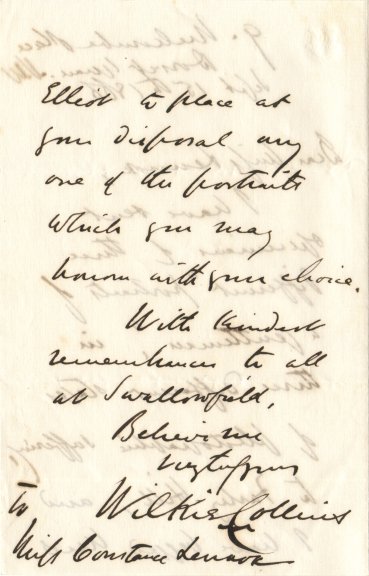 Elliot to place at
your disposal any
one of the portraits
which you may
honour with your choice.
With kindest
remembrances to all
at Swallowfield,
Believe me
Wilkie Collins
to
Miss Constance Lennox